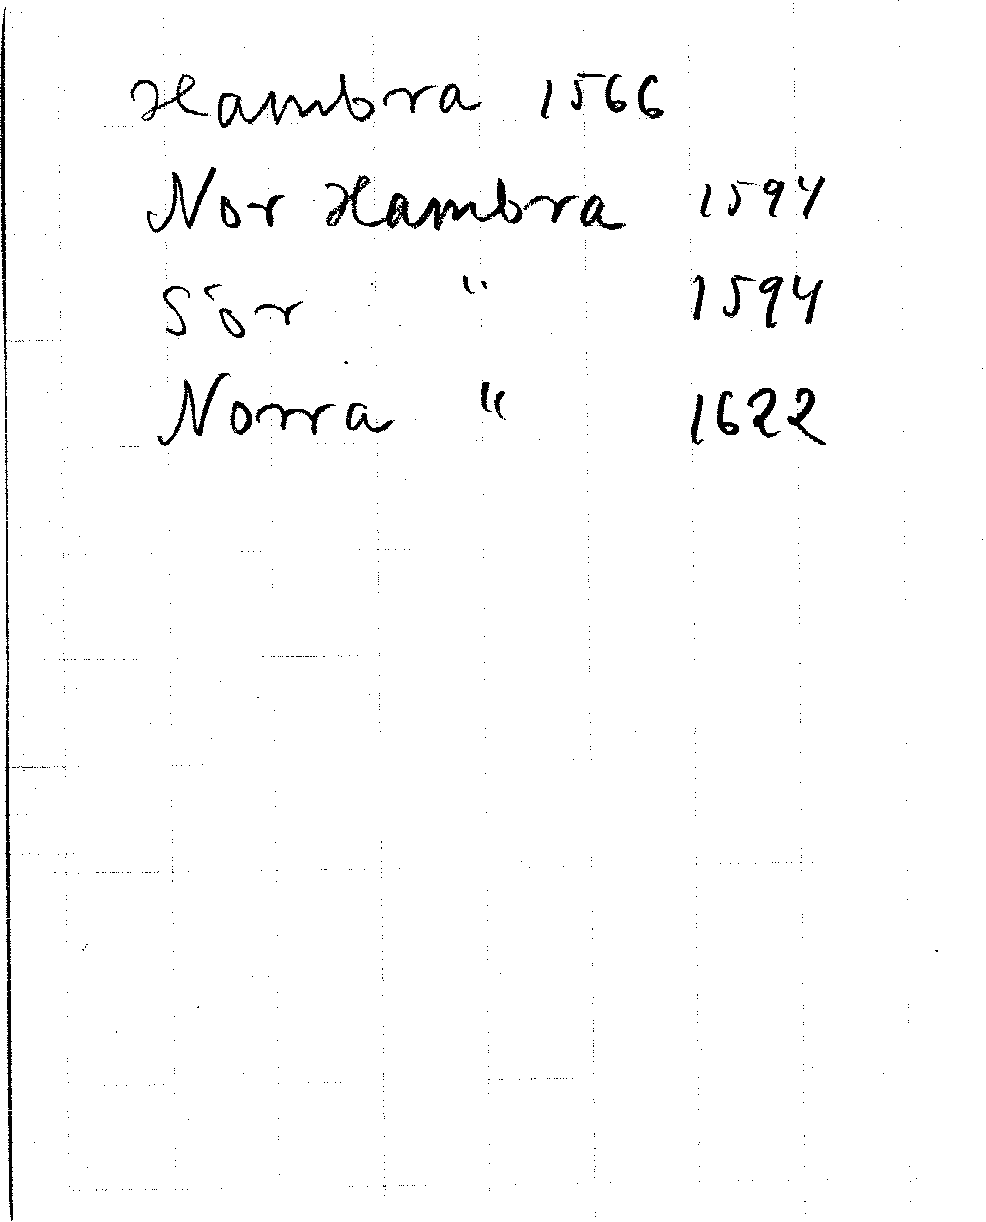 Hambra 1566
Nor Hambra 1594
Sör " 1594
Norra " 1622